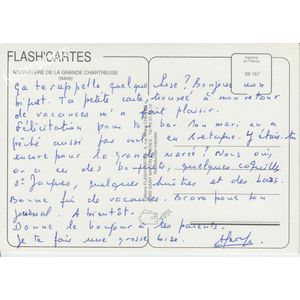 FLASH'CARTES
MONASTERE DE LA GRANDE CHARTREUSE
(Isère)
Imprimé
en France
38.167
Ça te rappelle quelque chose ? Bonjour mon
Ta petite carte, trouvée à mon retour
de vacances m'a fait plaisir.
Félicitation pour ton bar. Mon mari en a
pêché aussi pas en Bretagne. Y étais-tu
encore pour la grande marée ? Nous oui,
on a eu des quelques coquille
St Jacques, quelques huîtres et des bars.
Bonne fin de vacances. Bravo pour ton
journal. A bientôt.
Donne le bonjour à tes parents.
Je te fais une grosse bise.